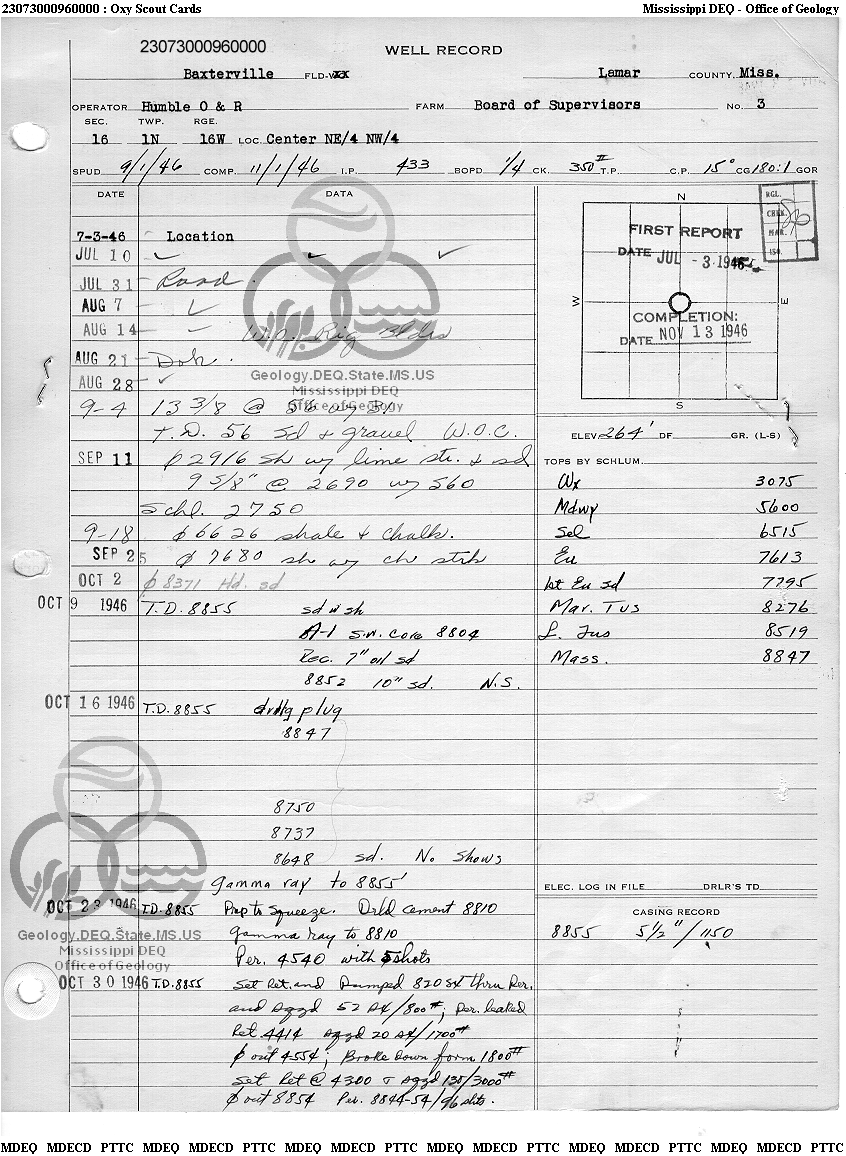 23073000960000 : Oxy Scout Cards Mississippi DEQ - Office of Geology
23073000960000
WELL RECORD
Baxterville FLD-WXX Lamar COUNTY, Miss.
OPERATOR Humble O & R FARM Board of Supervisors No. 3
SEC. TWP. RGE.
16 1N 16W LOC. Center NE/4 NW/4
SPUD 9/1/46 COMP. 11/1/46 I.P. 433 BOPD 1/4 CK. 350# T.P. C.P. 15° CG 180:1 GOR
DATE DATA
7-3-46 Location
JUL 10
JUL 31 Road
AUG 7
AUG 14 W.O. Rig Bldrs
AUG 21 Doh.
AUG 28
9-4 13 3/8 @ 56
T.D. 56 Sd & gravel W.O.C.
SEP 11 φ 2916 sh w/ lime str. & sd
9 5/8" @ 2690 w/ 560
Schl. 2750
9-18 φ 6626 shale & chalk.
SEP 25 φ 7680 sh w/ ch strk
OCT 2 φ 8371 Hd. sd
OCT 9 1946 T.D. 8855 sd w sh
A-1 S.W. Core 8804
Rec. 7" oil sd
8852 10" sd. N.S.
OCT 16 1946 T.D. 8855 drllg plug
8847
8750
8737
8648 sd. No Shows
gamma ray to 8855'
OCT 23 1946 T.D. 8855 Prep to squeeze. Drld cement 8810
gamma ray to 8810
Per. 4540 with 5 shots
OCT 30 1946 T.D. 8855 Set Ret. and Pumped 820 SX thru Per.
and sqzd 52 SX/800#; Per. leaked
Ret. 4414 sqzd 20 SX/1700#
φ out 4554; Broke Down form 1800#
Set Ret @ 4300 & sqzd 135/3000#
φ out 8854 Per. 8844-54/96 shts.
N
W E
S
RGL.
CHKR.
MAR.
ISO.
FIRST REPORT
DATE JUL - 3 1946
COMPLETION:
DATE NOV 13 1946
ELEV. 264' DF. GR. (L-S)
TOPS BY SCHLUM.
Wx 3075
Mdwy 5600
Sel 6515
Eu 7613
1st Eu sd 7795
Mar. Tus 8276
L. Tus 8519
Mass. 8847
ELEC. LOG IN FILE DRLR'S TD
CASING RECORD
8855 5 1/2"/1150
Geology.DEQ.State.MS.US
Mississippi DEQ
Office of Geology
Geology.DEQ.State.MS.US
Mississippi DEQ
Office of Geology
MDEQ MDECD PTTC MDEQ MDECD PTTC MDEQ MDECD PTTC MDEQ MDECD PTTC MDEQ MDECD PTTC MDEQ MDECD PTTC